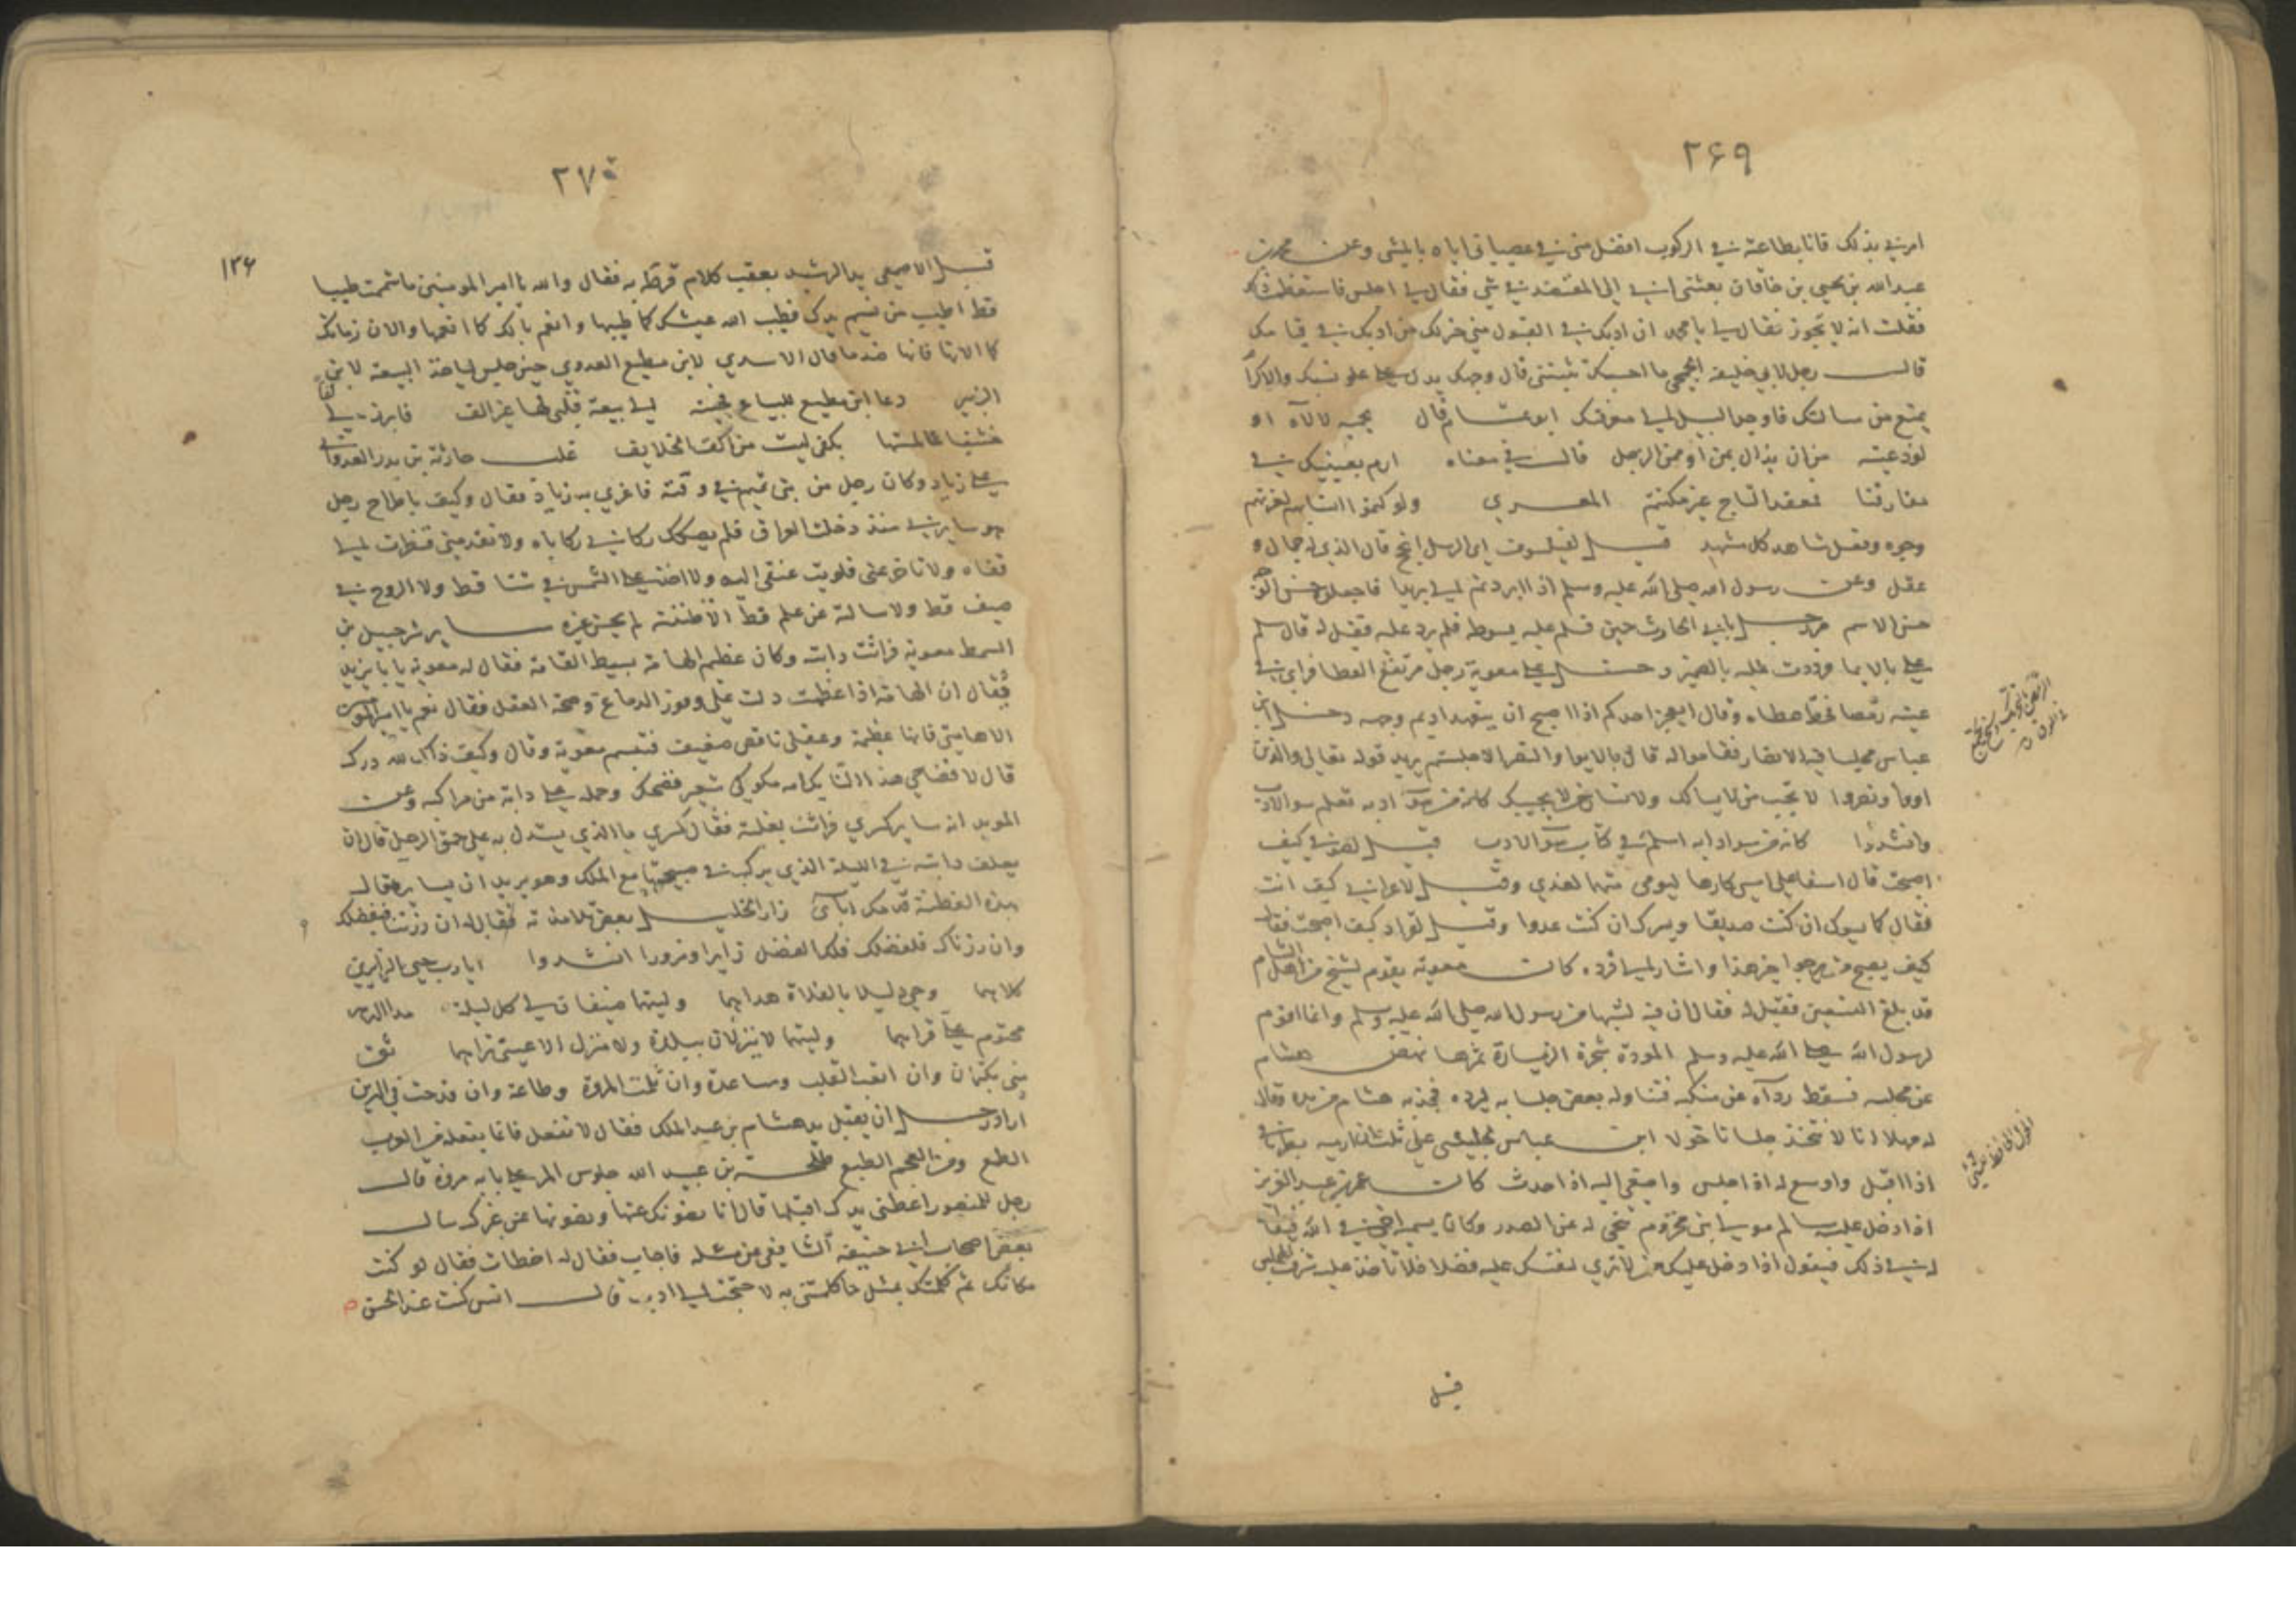 ٢۶٩
امرني بذلك فانا بطاعته في الركوب افضل مني في عصياني اياه بالمشي وعن محمد بن
عبد الله بن يحيى بن خاقان بعثني ابي الى المعتضد في شي فقال لي اجلس فاستعظمت ذلك
فقلت انه لا يجوز فقال لي يا محمد ان ادبك في القبول مني خير لك من ادبك في قيامك
قال رجل لابي خليفة الجمحي ما احسبك تثبتني قال وجهك يدل على علو نسبك والاكرام
يمنع من مسالتك فاوجد السبيل الى معرفتك ابو
لوذعيته من ان يذال بمن او ممن الرجل قال في معناه ارم بعينيك في
مفارقنا تعقد التاج غير مكتتم المعري ولو كتموا انسابهم لعزتهم
وجوه وفعل شاهد كل مشهد قيل لفيلسوف اي الرسل انجح قال الذي له جمال و
عقل وعن رسول الله صلى الله عليه وسلم اذا ابردتم الي بريدا فاجعلوه حسن الوجه
حسن الاسم رجل بابي الحارث حين فسلم عليه بسوطه فلم يرد عليه فقيل له قال سلم
علي بالايما فرددت عليه بالضمير دخل على معوية رجل مرتفع العطا فراى في
عينيه رمصا فحط عطاه وقال ايعجز احدكم اذا اصبح ان يتعهد اديم وجهه دخل ابن
عباس مجلسا فيه الانصار فقاموا له قال بالايوا والنصر الا جلستم يريد قوله تعالى والذين
اووا ونصروا لا تجب من لا يسالك ولا تسال من لا يجيبك كانه من سو ادبه تعلم سو الادب
وانشدوا كانه من سو ادابه اسلم في كتاب سو الادب قيل لصوفي كيف
اصبحت قال اسفا على امسي كارها ليومي متهما لغدي وقيل لاعرابي كيف انت
فقال كما يسوك ان كنت صديقا ويسرك ان كنت عدوا وقيل لقراد كيف اصبحت فقال
كيف يصبح من يرجو خير هذا واشار الى قرده كان معوية يقوم لشيخ من اهل الشام
قد بلغ التسعين فقيل له فقال ان فيه لشبها من رسول الله صلى الله عليه وسلم وانما اقوم
لرسول الله صلى الله عليه وسلم المودة شجرة الزيارة ثمرها نهض هشام
عن مجلسه فسقط رداه عن منكبه فتناوله بعض جلسايه ليرده فجذبه هشام من يده وقال
له مهلا انا لا نتخذ جلسانا خولا ابن عباس لجليسي علي ثلث ان ارميه بطرفي
اذا اقبل واوسع له اذا جلس واصغي اليه اذا حدث كان عمر بن عبد العزيز
اذا دخل عليه سالم مولى ابن مخزوم تنحى له عن الصدر وكان يسميه اخي في الله فيقال
له في ذلك فيقول اذا دخل عليك من لا ترى لنفسك عليه فضلا فلا تاخذ عليه شرف المجلس
قيل
٢٧٠
١٣۶
قبل الاصمعي يد الرشيد بعقب كلام قرظه به فقال والله يا امير المومنين ما شممت طيبا
قط اطيب من نسيم يدك فطيب الله عيشك كما طيبها وانعم بالك كما انعمها والان زمانك
كما الانها فانها ضد ما قال الاسدي لابن مطيع العدوي حين جلس لياخذ البيعة لابن
الزبير دعا ابن مطيع للبياع فجئته الى بيعة قلبي لها غير الف فابرز لي
خشنا لما لمستها بكفي ليست من اكف الخلايف غلب حارثة بن بدر الغداني
على زياد وكان رجل من بني تميم في وقته فاغري به زياد فقال وكيف باطراح رجل
هو سايرني منذ دخلت العراق فلم يصكك ركابي ركاباه ولا تقدمني فنظرت الى
قفاه ولا تاخر عني فلويت عنقي اليه ولا اخذ علي الشمس في شتا قط ولا الروح في
صيف قط ولا سالته عن علم قط الا ظننته لم يحسن غيره ساير شرحبيل بن
السمط معوية فراثت دابته وكان عظيم الهامة بسيط القامة فقال له معوية يا با يزيد
يقال ان الهامة اذا عظمت دلت على وفور الدماغ وصحة العقل فقال نعم يا امير المومنين
الا هامتي فانها عظيمة وعقلي ناقص ضعيف فتبسم معوية وقال وكيف ذاك لله درك
قال لاقضامي هذا مكوكي شعير فضحك وحمله على دابة من مراكبه وعن
الموبد انه ساير كسرى فراثت بغلته فقال كسرى ما الذي يستدل به على حمق الرجل قال ان
يعلف دابته في الليلة الذي يركب في صبيحتها مع الملك وهو يريد ان يسايره فقال
بهذه الفطنة قدمك اباى زار الخليل بعض تلامذته فقال له ان زرتنا فبفضلك
وان زرناك فلفضلك فلك الفضل زايرا ومزورا انشدوا ايا رب حيي الزايرين
كلاهما وحي دليلا بالفلاة هداهما وليتهما ضيفان لي كل ليلة مدى الدهر
محتوم علي قراهما وليتهما لا ينزلان ببلدة ولا منزل الا عيني تراهما ثوف
مني بكتمان وان اتعب القلب ومساعدة وان ثلمت المروة وطاعة وان قدحت في الدين
اراد رجل ان يقبل يد هشام بن عبد الملك فقال لا تفعل فانما يفعله من العرب
الطمع ومن العجم الطبع طلحة بن عبيد الله جلوس المر على بابه مروة قال
رجل للمنصور اعطني يدك اقبلها قال انا نصونك عنها ونصونها عن غيرك سال
بعض اصحاب ابي حنيفة الشافعي عن مسئلة فاجاب فقال له اخطات فقال لو كنت
مكانك ثم كلمتك بمثل ما كلمتني به لاحتجت الى ادب قال انس كنت عند الحسن